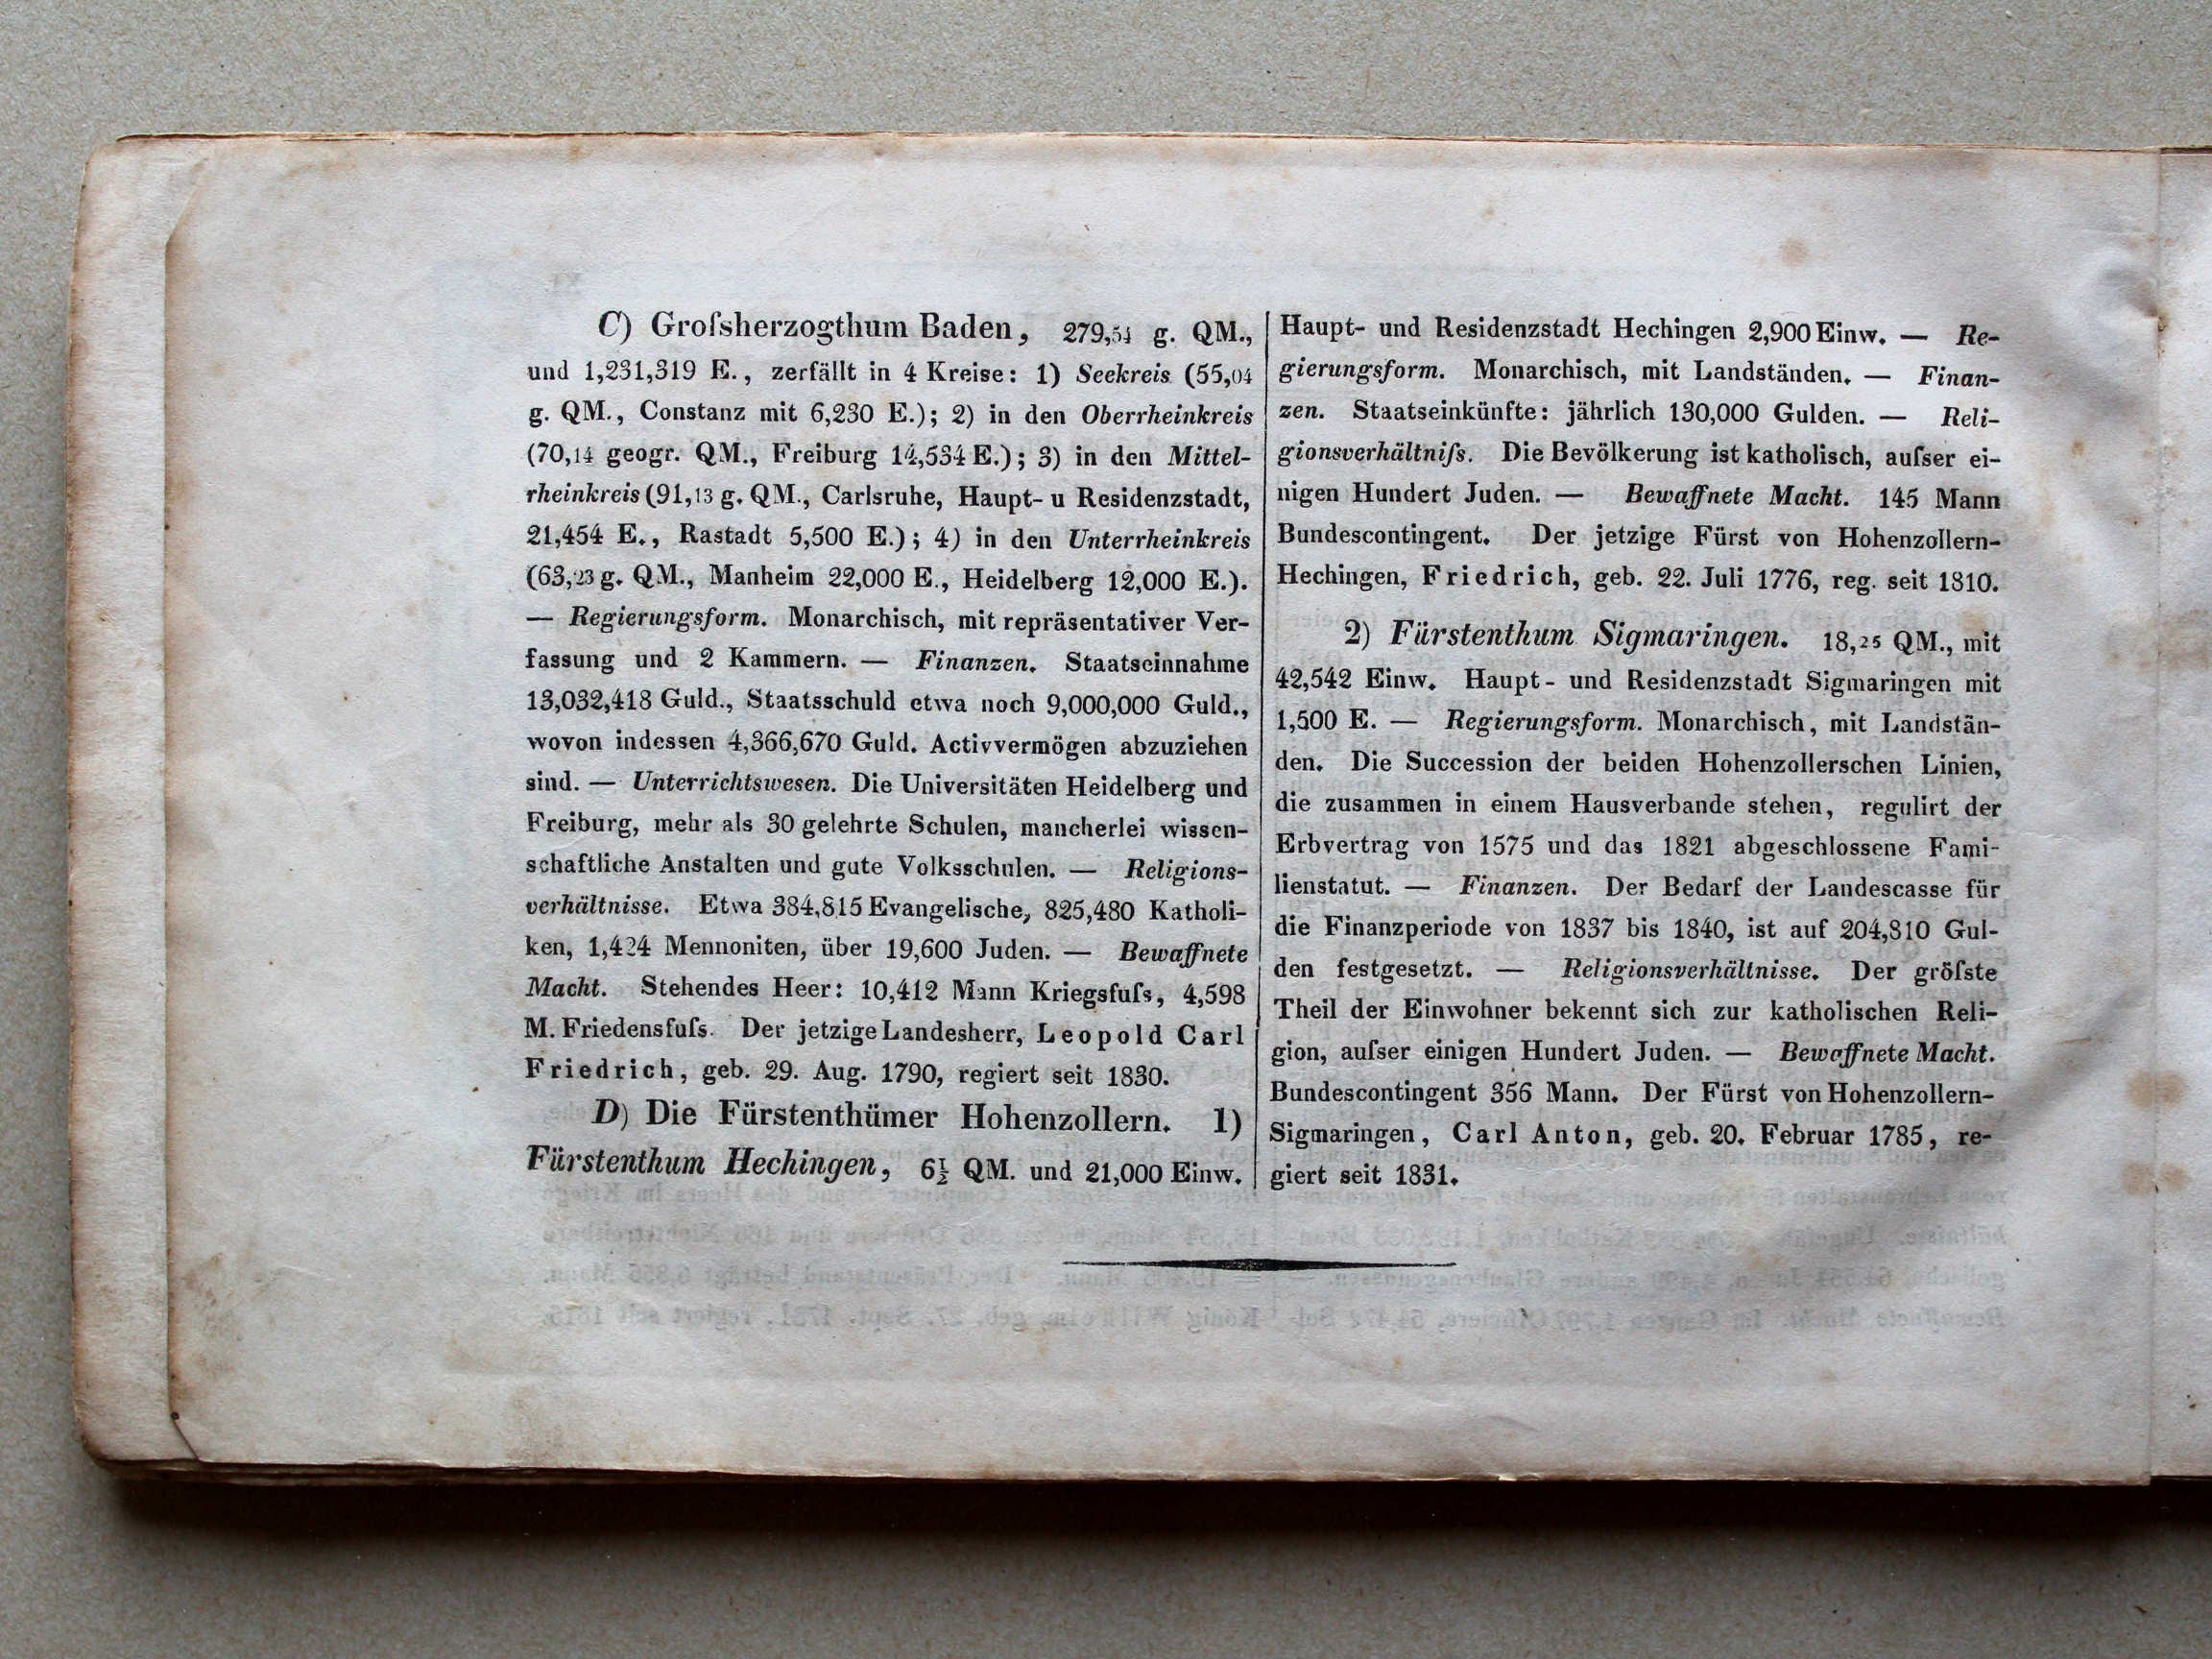 C) Groſsherzogthum Baden, 279,54 g. QM.,
und 1,231,319 E., zerfällt in 4 Kreise: 1) Seekreis (55,04
g. QM., Constanz mit 6,230 E.); 2) in den Oberrheinkreis
(70,14 geogr. QM., Freiburg 14,534 E.); 3) in den Mittel-
rheinkreis (91,13 g. QM., Carlsruhe, Haupt- u Residenzstadt,
21,454 E., Rastadt 5,500 E.); 4) in den Unterrheinkreis
(63,23 g. QM., Manheim 22,000 E., Heidelberg 12,000 E.).
— Regierungsform. Monarchisch, mit repräsentativer Ver-
fassung und 2 Kammern. — Finanzen. Staatseinnahme
13,032,418 Guld., Staatsschuld etwa noch 9,000,000 Guld.,
wovon indessen 4,366,670 Guld. Activvermögen abzuziehen
sind. — Unterrichtswesen. Die Universitäten Heidelberg und
Freiburg, mehr als 30 gelehrte Schulen, mancherlei wissen-
schaftliche Anstalten und gute Volksschulen. — Religions-
verhältnisse. Etwa 384,815 Evangelische, 825,480 Katholi-
ken, 1,424 Mennoniten, über 19,600 Juden. — Bewaffnete
Macht. Stehendes Heer: 10,412 Mann Kriegsfuſs, 4,598
M. Friedensfuſs. Der jetzige Landesherr, Leopold Carl
Friedrich, geb. 29. Aug. 1790, regiert seit 1830.
D) Die Fürstenthümer Hohenzollern. 1)
Fürstenthum Hechingen, 6½ QM. und 21,000 Einw.
Haupt- und Residenzstadt Hechingen 2,900 Einw. — Re-
gierungsform. Monarchisch, mit Landständen. — Finan-
zen. Staatseinkünfte: jährlich 130,000 Gulden. — Reli-
gionsverhältniſs. Die Bevölkerung ist katholisch, auſser ei-
nigen Hundert Juden. — Bewaffnete Macht. 145 Mann
Bundescontingent. Der jetzige Fürst von Hohenzollern-
Hechingen, Friedrich, geb. 22. Juli 1776, reg. seit 1810.
2) Fürstenthum Sigmaringen. 18,25 QM., mit
42,542 Einw. Haupt- und Residenzstadt Sigmaringen mit
1,500 E. — Regierungsform. Monarchisch, mit Landstän-
den. Die Succession der beiden Hohenzollerschen Linien,
die zusammen in einem Hausverbande stehen, regulirt der
Erbvertrag von 1575 und das 1821 abgeschlossene Fami-
lienstatut. — Finanzen. Der Bedarf der Landescasse für
die Finanzperiode von 1837 bis 1840, ist auf 204,810 Gul-
den festgesetzt. — Religionsverhältnisse. Der gröſste
Theil der Einwohner bekennt sich zur katholischen Reli-
gion, auſser einigen Hundert Juden. — Bewaffnete Macht.
Bundescontingent 356 Mann. Der Fürst von Hohenzollern-
Sigmaringen, Carl Anton, geb. 20. Februar 1785, re-
giert seit 1831.